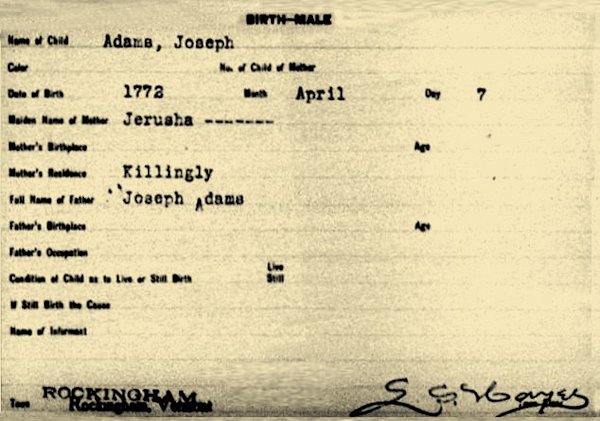 BIRTH—MALE
Name of Child Adams, Joseph
Color No. of Child of Mother
Date of Birth 1772 Month April Day 7
Maiden Name of Mother Jerusha -------
Mother's Birthplace Age
Mother's Residence Killingly
Full Name of Father Joseph Adams
Father's Birthplace Age
Father's Occupation
Condition of Child as to Live or Still Birth Live
Still
If Still Birth the Cause
Name of Informant
ROCKINGHAM
Town Rockingham, Vermont